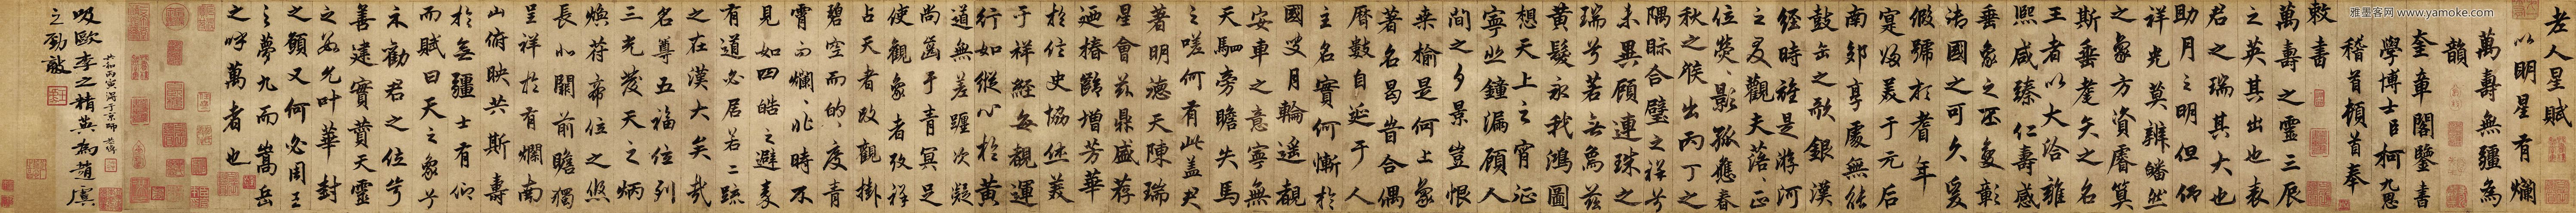 老人星賦
以明星有爛
萬壽無疆為
韻
奎章閣鑒書
學博士臣柯九思
稽首頓首奉
敕書
萬壽之靈三辰
之英其出也表
君之瑞其大也
助月之明但仰
祥光莫辨皤然
之象方資睿算
斯垂耄矣之名
王者以大洽雍
熙咸臻仁壽感
垂象之丕變彰
法國之可久爰
假號於耆年
寔美于元后
南郊享處無能
鼓缶之歌銀漢
經時雖是游河
之叟觀夫落落正
位熒熒影孤應春
秋之候出丙丁之
隅眎合璧之祥兮
未異顧連珠之
瑞兮若無為茲
黃髮永我鴻圖
想天上之宵征
寧悲鐘漏顧人
間之夕景豈恨
桑榆是何上象
著名曷昔合偶
曆數自延于人
主名實何慚於
國叟月輪遙覩
安車之意寧無
天駟旁瞻失馬
之嗟何有此蓋
著明德天陳瑞
星會茲鼎盛荐
迺椿齡增芳華
於信史協義
于祥經每覩運
行如縱心於黃
道無差躔次凝
尚齒于青冥足
使觀象者攷祥
占天者改觀掛
碧空而的的度青
霄而爛爛非時不
見如四皓之避秦
有道必居若二疏
之在漢大矣哉
名尊五福位列
三光凌天之炳
煥符帝位之悠
長北闕前瞻獨
呈祥於有爛南
山俯映共斯壽
於無疆士有仰
而賦曰天之象兮
示勸君之位兮
善建實賚天靈
之允叶華封
之願又何必周王
之夢九而嵩岳
之呼萬者也
共和丙寅京師
吸歐李之精英為趙虞
之勁敵
雅墨客网 www.yamoke.com